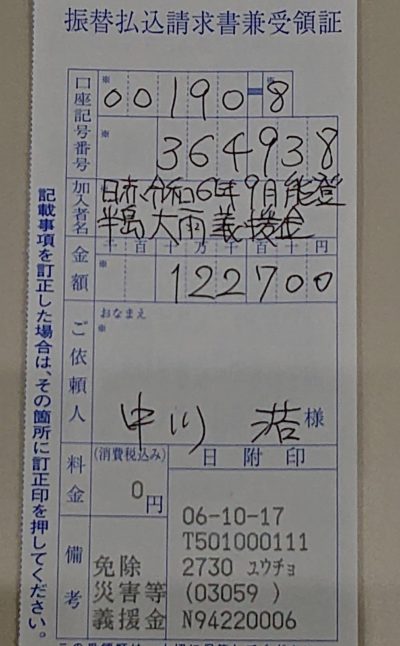 振替払込請求書兼受領証
口座記号番号
※
00190-8
※
※
364938
加入者名
※
日赤令和6年9月能登
半島大雨義援金
金額
千百十万千百十円
※
122700
ご依頼人
おなまえ
※
中川 浩様
料金
(消費税込み)
0円
日附印
06-10-17
T501000111
2730 ユウチョ
(03059 )
N94220006
備考
免除
災害等
義援金
記載事項を訂正した場合は、その箇所に訂正印を押してください。